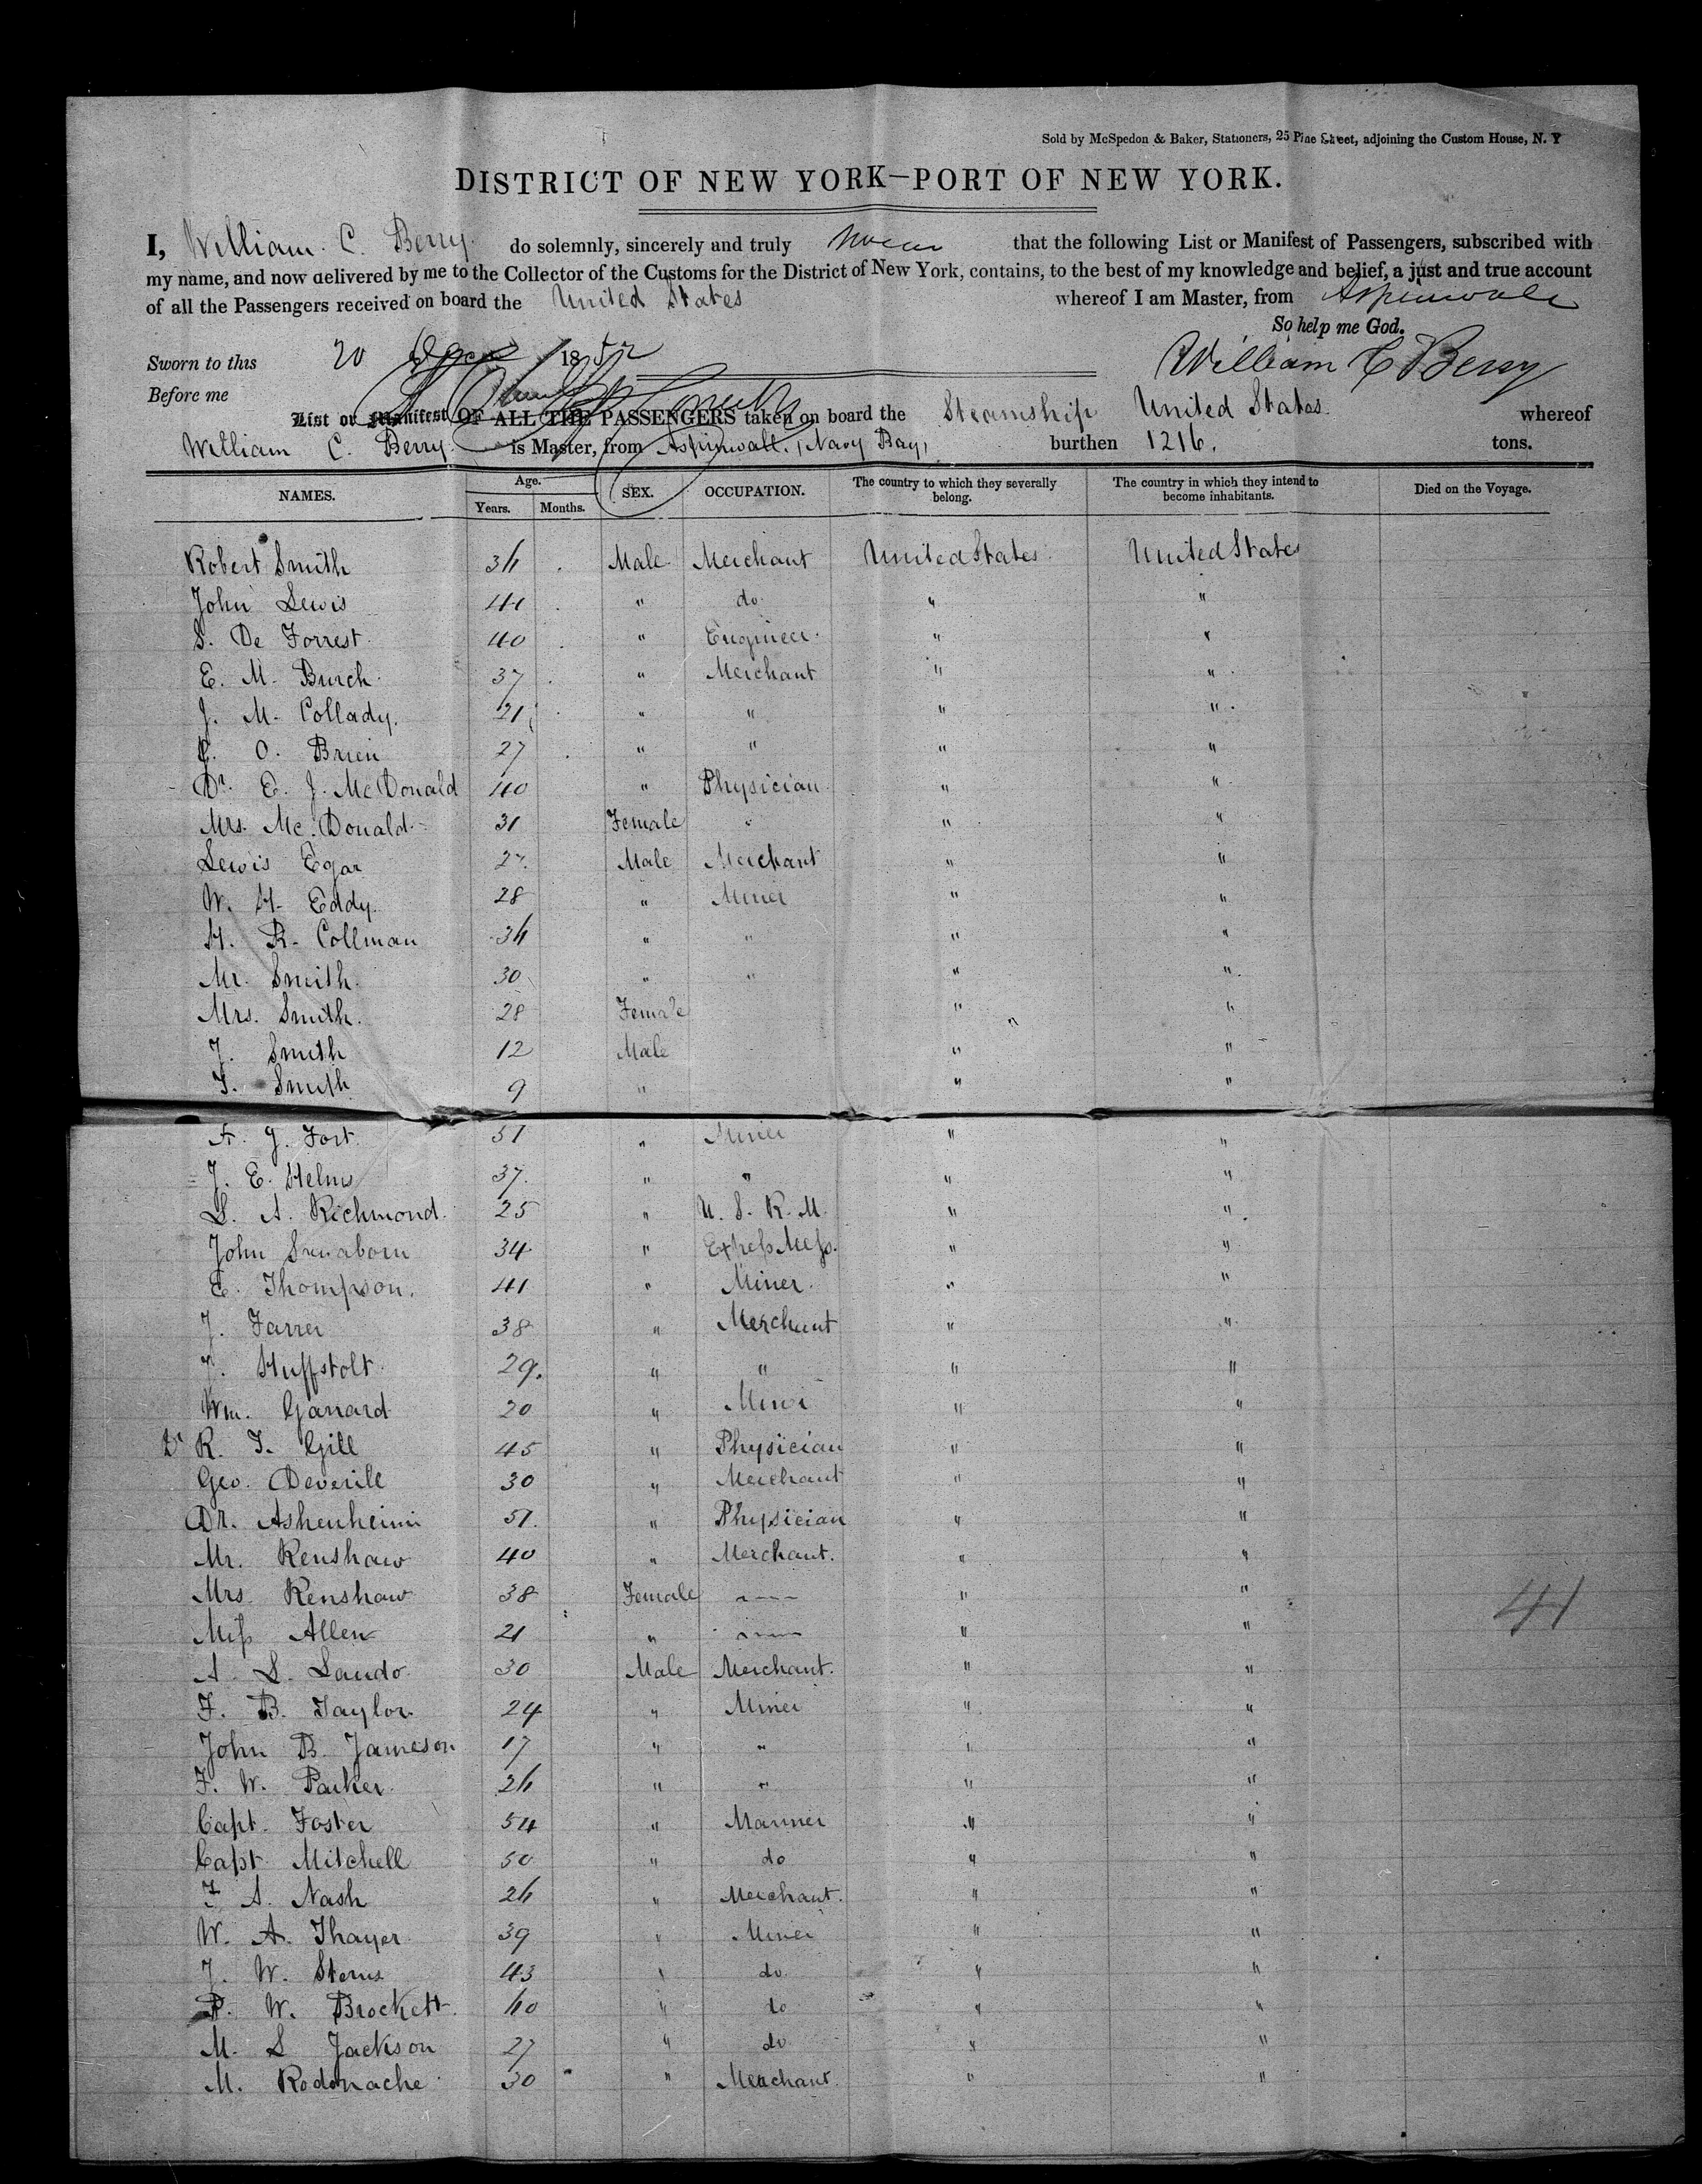 Sold by McSpedon & Baker, Stationers, 25 Pine Street, adjoining the Custom House, N. Y
DISTRICT OF NEW YORK—PORT OF NEW YORK.
I, William C. Berry do solemnly, sincerely and truly swear that the following List or Manifest of Passengers, subscribed with
my name, and now delivered by me to the Collector of the Customs for the District of New York, contains, to the best of my knowledge and belief, a just and true account
of all the Passengers received on board the United States whereof I am Master, from Aspinwall
So help me God.
Sworn to this 20 1852
William C Berry
Before me
List or Manifest OF ALL THE PASSENGERS taken on board the Steamship United States whereof
William C. Berry is Master, from Aspinwall, (Navy Bay) burthen 1216. tons.
NAMES. Age. Years. Months. SEX. OCCUPATION. The country to which they severally belong. The country in which they intend to become inhabitants. Died on the Voyage.
Robert Smith 34 Male Merchant United States United States
John Lewis 41 " do " "
S. De Forrest 40 " Engineer " "
E. M. Burch 37 " Merchant " "
J. M. Collady. 21 " " " "
O. Brien 27 " " " "
Dr. E. J. McDonald 40 " Physician " "
Mrs. Mc.Donald 31 Female " " "
Lewis Egar 27 Male Merchant " "
W. H. Eddy. 28 " Miner " "
H. R. Collman 34 " " " "
Mr. Smith. 30 " " " "
Mrs. Smith. 28 Female " "
J. Smith 12 Male " "
T. Smith 9 " " "
G. Fort. 31 " Miner " "
J. E. Helms 37. " " " "
L. A. Richmond. 25 " U. S. R. M. " "
John 34 " Express Mess. " "
E. Thompson. 41 " Miner. " "
J. Farrer 38 " Merchant " "
J. Huffstolt 29. " " " "
Wm. Garrard 20 " Miner " "
Dr R. T. Gill 45 " Physician " "
Geo. Deverill 30 " Merchant " "
Dr. Ashenheim 51. " Physician " "
Mr. Renshaw 40 " Merchant. " "
Mrs. Renshaw 38 Female ---- " "
Miss Allen 21 " ---- " "
A. L. Lando 30 Male Merchant. " "
F. B. Taylor 24 " Miner " "
John B. Jameson 17 " " " "
F. W. Parker 24 " " " "
Capt. Foster 54 " Mariner " "
Capt Mitchell 50 " do " "
F A. Nash 24 " Merchant. " "
W. A. Thayer 39 " Miner " "
J. W. Sterns 43 " do " "
P. W. Brockett 40 " do " "
M. S Jackson 27 " do " "
M. Rodonache 30 " Merchant. " "
41